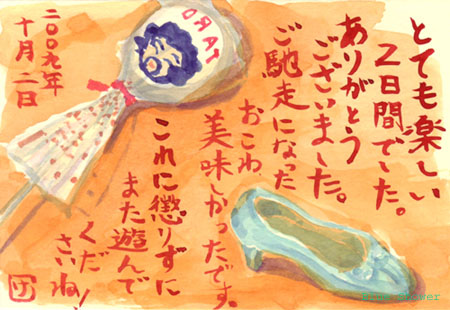 とても楽しい
2日間でした。
ありがとう
ございました。
ご馳走になった
おこわ、
美味しかったです。
これに懲りずに
また遊んで
くだ
さいね!
二〇〇九年
十月二日
TARO